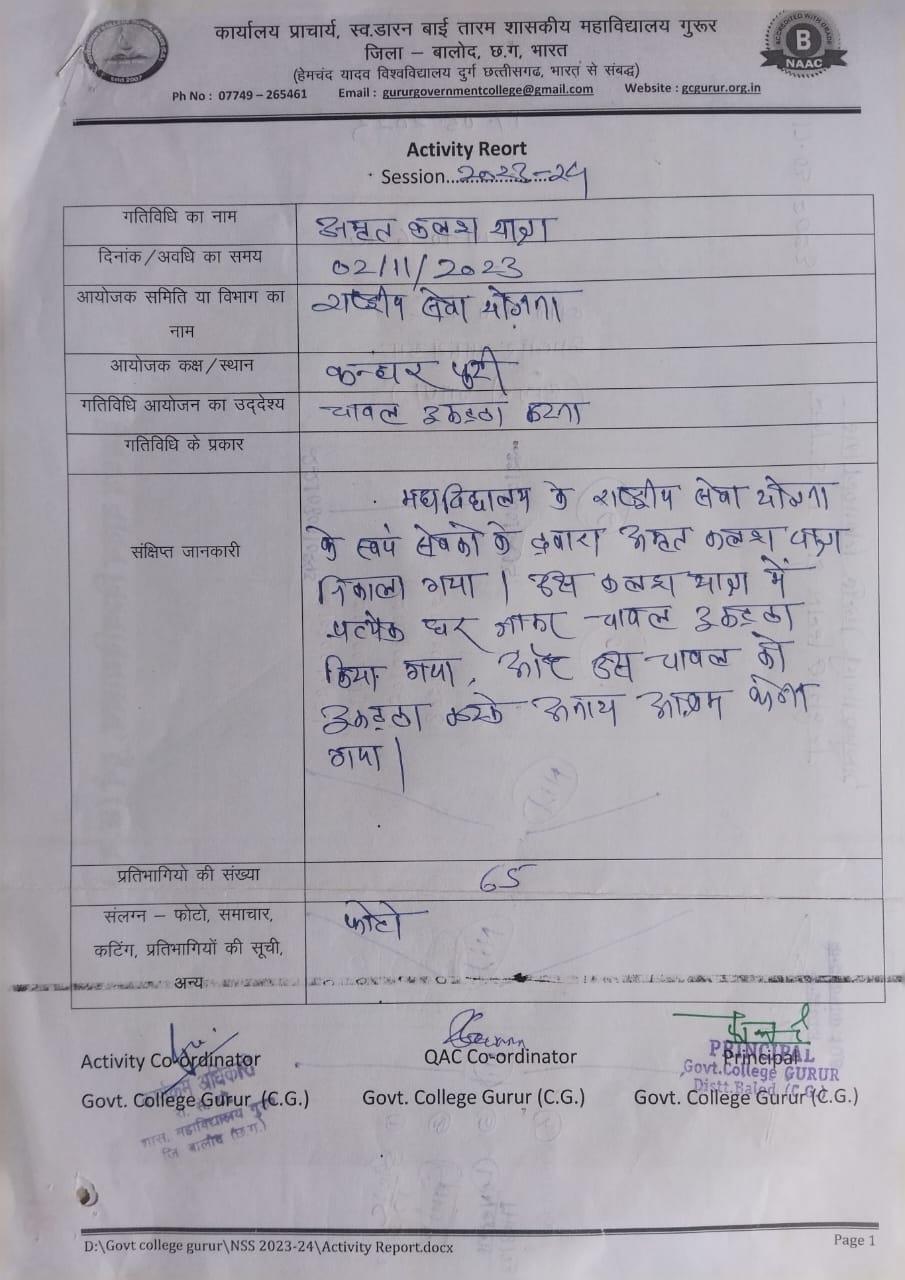 कार्यालय प्राचार्य, स्व.डारन बाई तारम शासकीय महाविद्यालय गुरूर
जिला – बालोद, छ.ग, भारत
(हेमचंद यादव विश्वविद्यालय दुर्ग छत्तीसगढ, भारत से संबद्ध)
Ph No : 07749 – 265461 Email : gururgovernmentcollege@gmail.com Website : gcgurur.org.in
ACCREDITED WITH GRADE
B
NAAC
Activity Reort
Session...2023-24
गतिविधि का नाम अमृत कलश यात्रा
दिनांक/अवधि का समय 02/11/2023
आयोजक समिति या विभाग का राष्ट्रीय सेवा योजना
नाम
आयोजक कक्ष/स्थान कन्हार पुरी
गतिविधि आयोजन का उद्देश्य चावल इकट्ठा करना
गतिविधि के प्रकार
संक्षिप्त जानकारी
महाविद्यालय के राष्ट्रीय सेवा योजना
के स्वयं सेवको के द्वारा अमृत कलश यात्रा
निकाला गया। इस कलश यात्रा में
प्रत्येक घर जाकर चावल इकट्ठा
किया गया, और इस चावल को
इकट्ठा करके अनाथ आश्रम भेजा
गया।
प्रतिभागियो की संख्या 65
संलग्न – फोटो, समाचार, फोटो
कटिंग, प्रतिभागियों की सूची,
अन्य
Activity Co-ordinator QAC Co-ordinator Principal
Govt. College Gurur (C.G.) Govt. College Gurur (C.G.) Govt. College Gurur (C.G.)
PRINCIPAL
Govt.College GURUR
Distt.Balod (C.G.)
कार्यक्रम अधिकारी
शास. महाविद्यालय
जि बालोद (छ.ग.)
D:\Govt college gurur\NSS 2023-24\Activity Report.docx Page 1